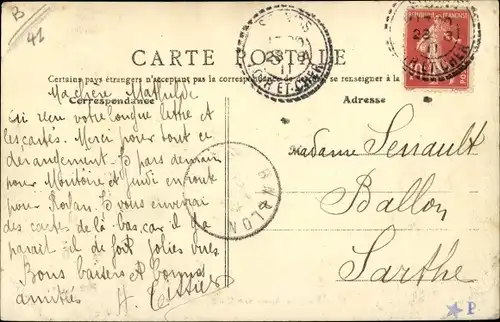 B
41
CARTE POSTALE
Certains pays étrangers n'acceptent pas la correspondance de se renseigner à la
Correspondance
Adresse
Ma chère Mathilde
J'ai reçu votre longue lettre et
les cartes. Merci pour tout ce
dérangement. Je pars demain
pour et Jeudi en route
pour Royan. Je vous enverrai
des cartes de là-bas, car il y a
parait il de fort jolies vues.
Bons baisers et bonnes
amitiés
A. Tissier
Madame Senault
Ballon
Sarthe
BALLON
R ET CHER
28
11
REPUBLIQUE FRANÇAISE
28
ET CHER
★P